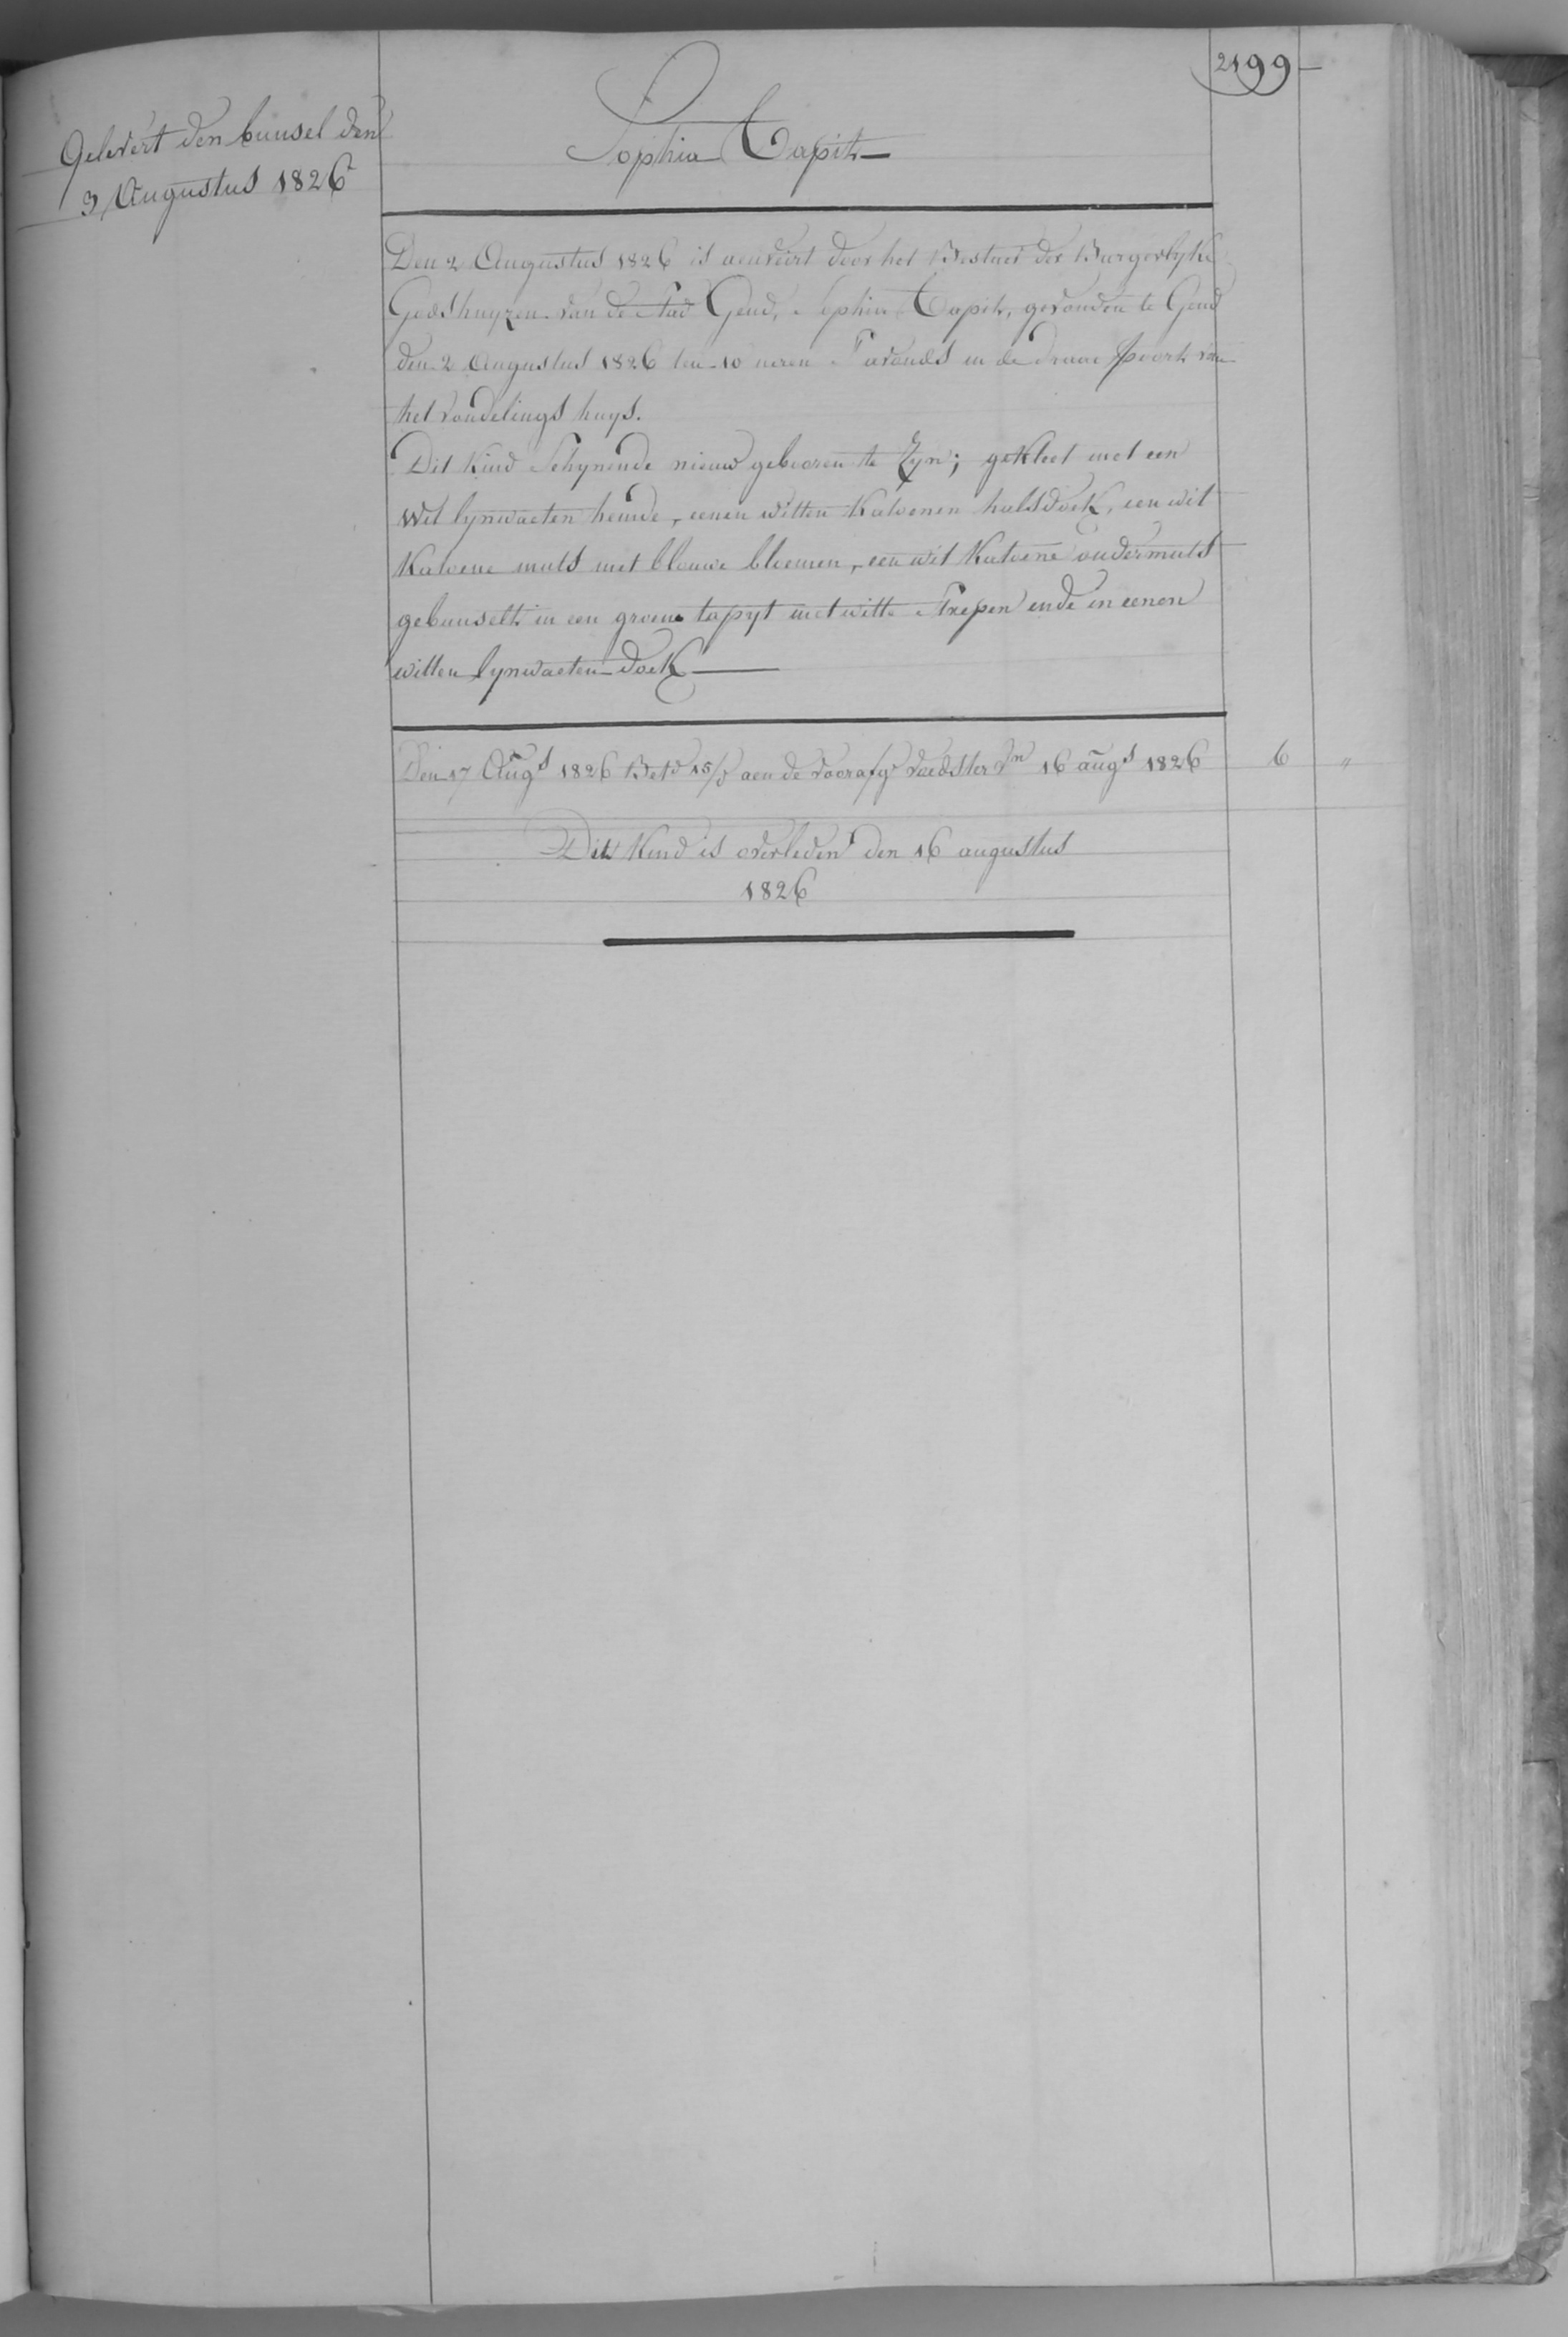 2199
Gelevert den bunsel den
3 Augustus 1826
Sophia Tapit
Den 2 Augustus 1826 is aenveirt door het Bestuer der Burgerlyke
Godshuyzen van de stad Gend, Sophia Tapit, gevonden te Gend
den 2 Augustus 1826 ten 10 ueren S'avonds in de draae poort van
het vondelings huys.
Dit Kind Schynende nieuw gebooren te Zyn; gekleet met een
wit lynwaeten hemde, eenen witten Katoenen halsdoek, een wit
Katoene muts met blauwe bloemen, een wit Katoene ondermuts
gebunselt in een groene tapyt met witte strepen ende in eenen
witten lynwaeten doek
Den 17 Augs 1826 Betd 15/3 aen de voorafge voedster Vn 16 augs 1826 6 "
Dit Kind is overleden den 16 augustus
1826